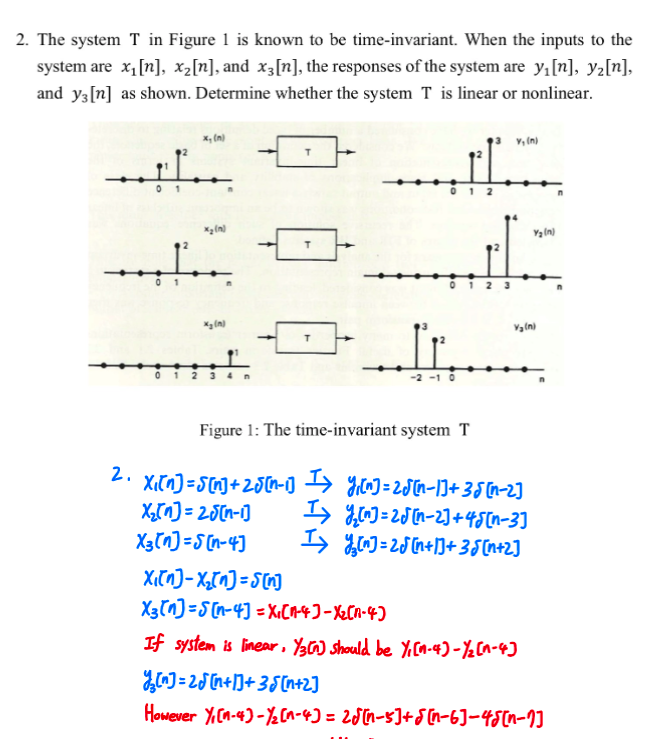 2. The system T in Figure 1 is known to be time-invariant. When the inputs to the
system are x₁[n], x₂[n], and x₃[n], the responses of the system are y₁[n], y₂[n],
and y₃[n] as shown. Determine whether the system T is linear or nonlinear.
x₁(n) T 3 y₁(n)
1 2 2
0 1 n 0 1 2 n
x₂(n) T 4 y₂(n)
2 2
0 1 n 0 1 2 3 n
x₃(n) T 3 y₃(n)
1 2
0 1 2 3 4 n -2 -1 0 n
Figure 1: The time-invariant system T
2. x₁[n]=δ[n]+2δ[n-1] T→ y₁[n]=2δ[n-1]+3δ[n-2]
x₂[n]=2δ[n-1] T→ y₂[n]=2δ[n-2]+4δ[n-3]
x₃[n]=δ[n-4] T→ y₃[n]=2δ[n+1]+3δ[n+2]
x₁[n]-x₂[n]=δ[n]
x₃[n]=δ[n-4]=x₁[n-4]-x₂[n-4]
If system is linear, y₃[n] should be y₁[n-4]-y₂[n-4]
y₃[n]=2δ[n+1]+3δ[n+2]
However y₁[n-4]-y₂[n-4]=2δ[n-5]+δ[n-6]-4δ[n-7]